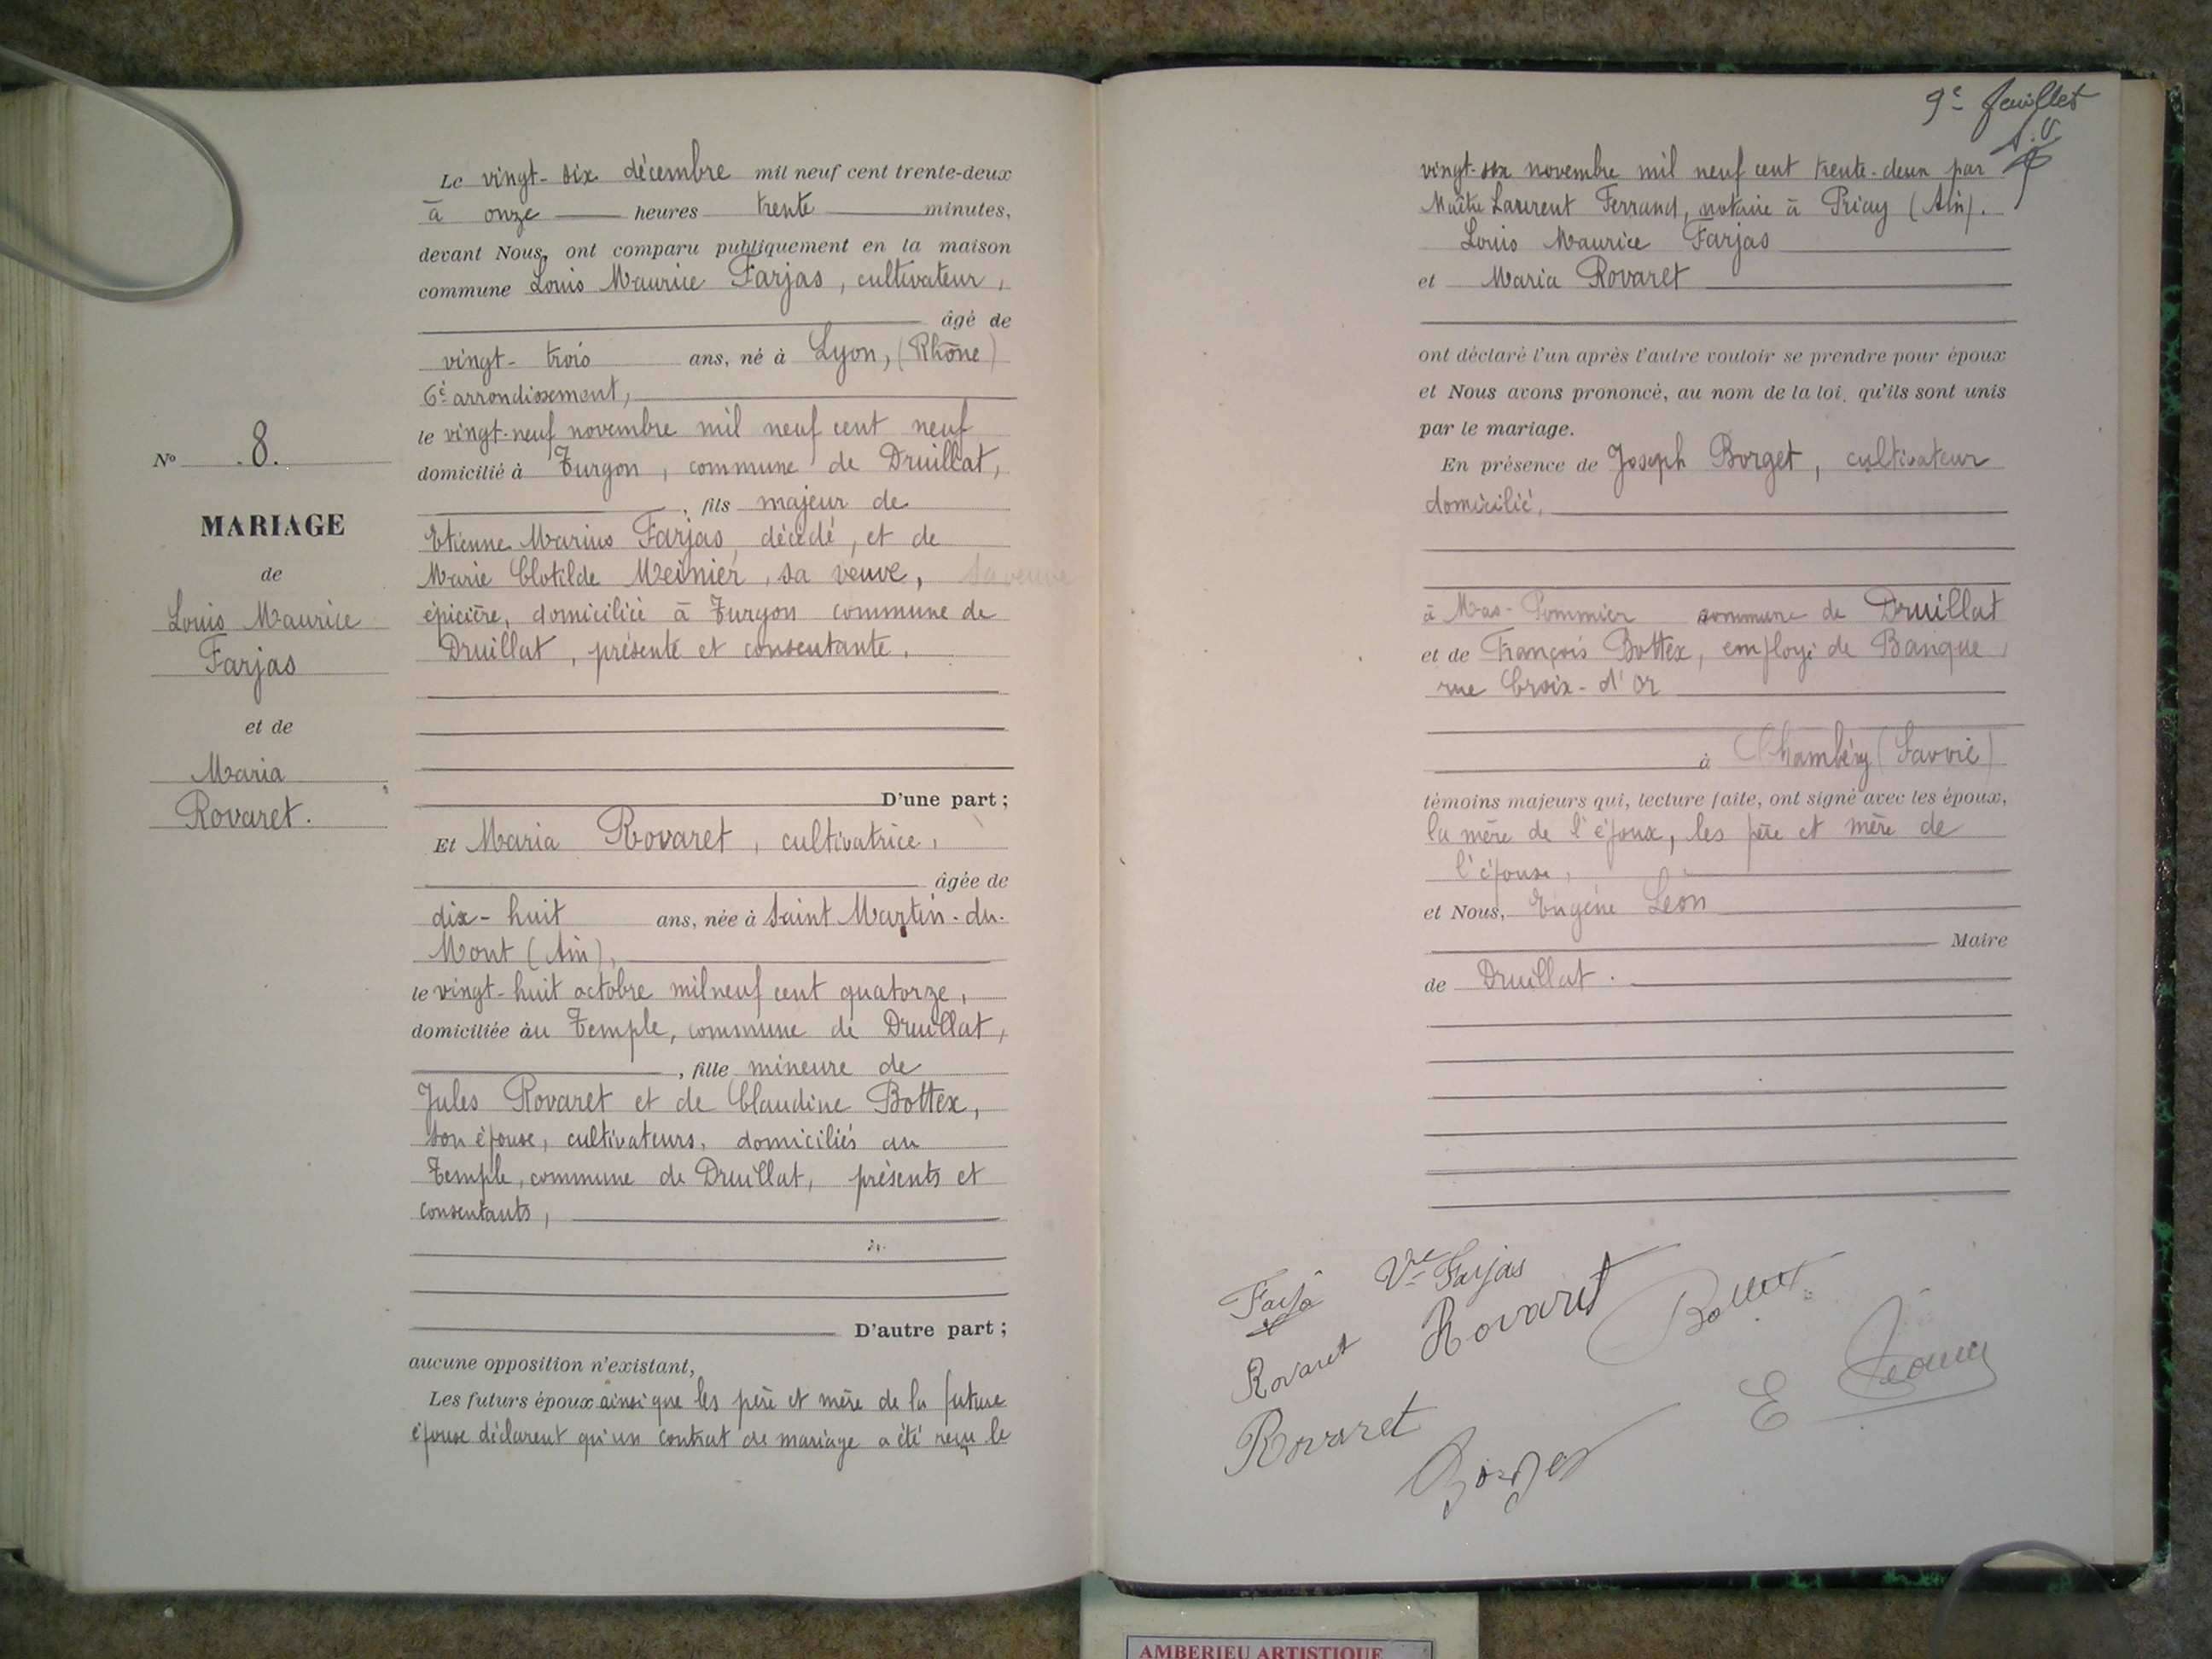 Le vingt-six décembre mil neuf cent trente-deux
à onze heures trente minutes,
devant Nous, ont comparu publiquement en la maison
commune Louis Maurice Farjas, cultivateur,
âgé de
vingt-trois ans, né à Lyon, (Rhône)
6e arrondissement,
le vingt-neuf novembre mil neuf cent neuf
domicilié à Turgon, commune de Druillat,
, fils majeur de
Etienne Marius Farjas, décédé, et de
Marie Clotilde Meinier, sa veuve, sa veuve
épicière, domiciliée à Turgon commune de
Druillat, présente et consentante.
D'une part ;
Et Maria Rovaret, cultivatrice,
âgée de
dix-huit ans, née à Saint Martin-du-
Mont (Ain),
le vingt-huit octobre mil neuf cent quatorze,
domiciliée au Temple, commune de Druillat,
, fille mineure de
Jules Rovaret et de Claudine Bottex,
son épouse, cultivateurs, domiciliés au
Temple, commune de Druillat, présents et
consentants,
D'autre part ;
aucune opposition n'existant,
Les futurs époux ainsi que les père et mère de la future
épouse déclarent qu'un contrat de mariage a été reçu le
No 8.
MARIAGE
de
Louis Maurice
Farjas
et de
Maria
Rovaret.
9e feuillet
vingt-six novembre mil neuf cent trente-deux par
Maître Laurent Ferrand, notaire à Priay (Ain).
Louis Maurice Farjas
et Maria Rovaret
ont déclaré l'un après l'autre vouloir se prendre pour époux
et Nous avons prononcé, au nom de la loi, qu'ils sont unis
par le mariage.
En présence de Joseph Borget, cultivateur
domicilié,
à Mas-Pommier commune de Druillat
et de François Bottex, employé de Banque,
rue Croix-d'Or
à Chambéry (Savoie)
témoins majeurs qui, lecture faite, ont signé avec les époux,
la mère de l'époux, les père et mère de
l'épouse,
et Nous, Eugène Léon
Maire
de Druillat.
Vve Farjas
Rovaret Rovaret
Rovaret
AMBERIEU ARTISTIQUE